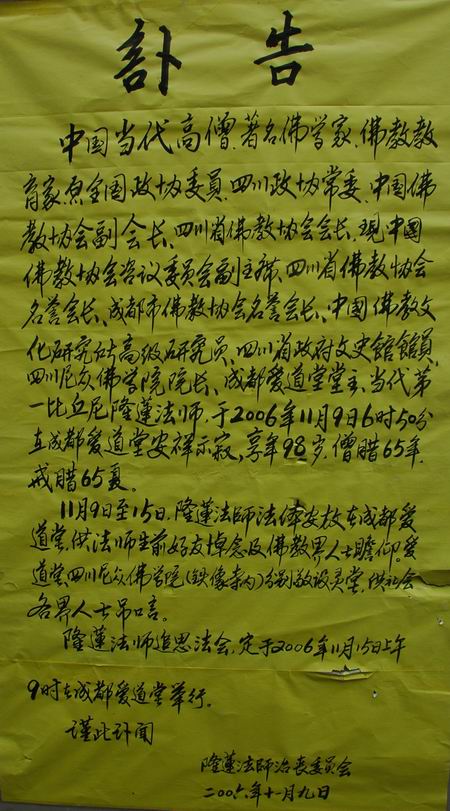 訃告
中国当代高僧、著名佛学家、佛教教
育家、原全国政协委员、四川政协常委、中国佛
教协会副会长、四川省佛教协会会长、現中國
佛教协会咨议委员会副主席、四川省佛教协会
名誉会长、成都市佛教协会名誉会长、中国佛教文
化研究所高级研究员、四川省政府文史館館員、
四川尼众佛学院院长、成都爱道堂堂主、当代第
一比丘尼隆蓮法师，于2006年11月9日6时50分
在成都爱道堂安祥示寂，享年98岁，僧腊65年，
戒腊65夏。
11月9日至15日，隆蓮法師法体安放在成都爱
道堂，供法师生前好友悼念及佛教界人士瞻仰。爱
道堂、四川尼众佛学院（铁像寺内）分别敬设灵堂，供社会
各界人士吊唁。
隆蓮法师追思法会，定于2006年11月15日上午
9时在成都爱道堂举行。
谨此訃闻
隆蓮法師治丧委员会
二00六年十一月九日